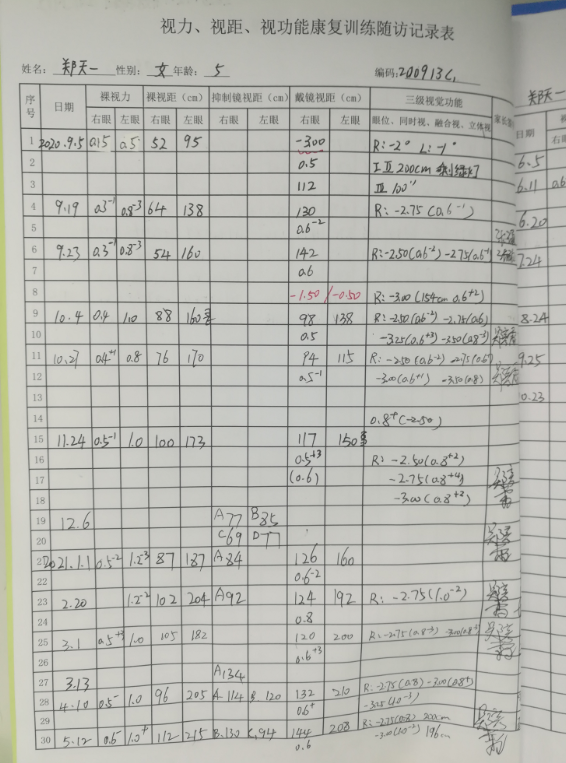 视力、视距、视功能康复训练随访记录表
姓名：郑天一 性别：女 年龄：5 编码：200913C1
序号 日期 裸视力 裸视距（cm） 抑制镜视距（cm） 戴镜视距（cm） 三级视觉功能
右眼 左眼 右眼 左眼 右眼 左眼 右眼 左眼 眼位、同时视、融合视、立体视
1 2020.9.5 0.15 0.5 52 95 -3.00 R:-2° L:-1°
2 0.5 I II 200cm
3 112 III 100"
4 9.19 0.3⁻¹ 0.8⁻³ 64 138 130 R:-2.75(0.6⁻¹)
5 0.6⁻²
6 9.23 0.3⁻¹ 0.8⁻³ 54 160 142 R:-2.50(0.6⁻²) -2.75(0.6⁺)
7 0.6
8 -1.50 / -0.50 R:-3.00(154cm 0.6⁺²)
9 10.4 0.4 1.0 88 160 98 138 R:-2.50(0.6⁻²) -2.75(0.6)
10 0.5 -3.25(0.6⁺³) -3.50(0.8⁻³)
11 10.27 0.4⁺¹ 0.8 76 170 94 115 R:-2.50(0.6⁻²) -2.75(0.6)
12 0.5⁻¹ -3.00(0.6⁺¹) -3.50(0.8)
13
14 0.8⁺(-2.50)
15 11.24 0.5⁻¹ 1.0 100 173 117 150
16 0.5⁺³ R:-2.50(0.8⁺²)
17 (0.6) -2.75(0.8⁺⁴)
18 -3.00(0.8⁺²)
19 12.6 A77 B85
20 C69 D77
21 2021.1.1 0.5⁻² 1.2⁻³ 87 187 A84 126 160
22 0.6⁻²
23 2.20 1.2⁻² 102 204 A92 124 192 R:-2.75(1.0⁻²)
24 0.8
25 3.1 0.5⁺³ 1.0 105 182 120 200 R:-2.75(0.8⁻³)
26 0.6⁺³
27 3.13 A134
28 4.10 0.5⁻ 1.0 96 205 A.114 B.120 132 210 R:-2.75(0.8) -3.00(0.8⁺)
29 0.6⁺ -3.25(1.0⁻³)
30 5.12 0.6 1.0⁺ 112 215 B.130 C.94 144 208 R:-2.75(0.8) 200cm
0.6 -3.00(1.0⁻²) 196cm
郑天一
日期
右眼
6.5
6.11 0.6
6.20
7.24
8.24
9.25